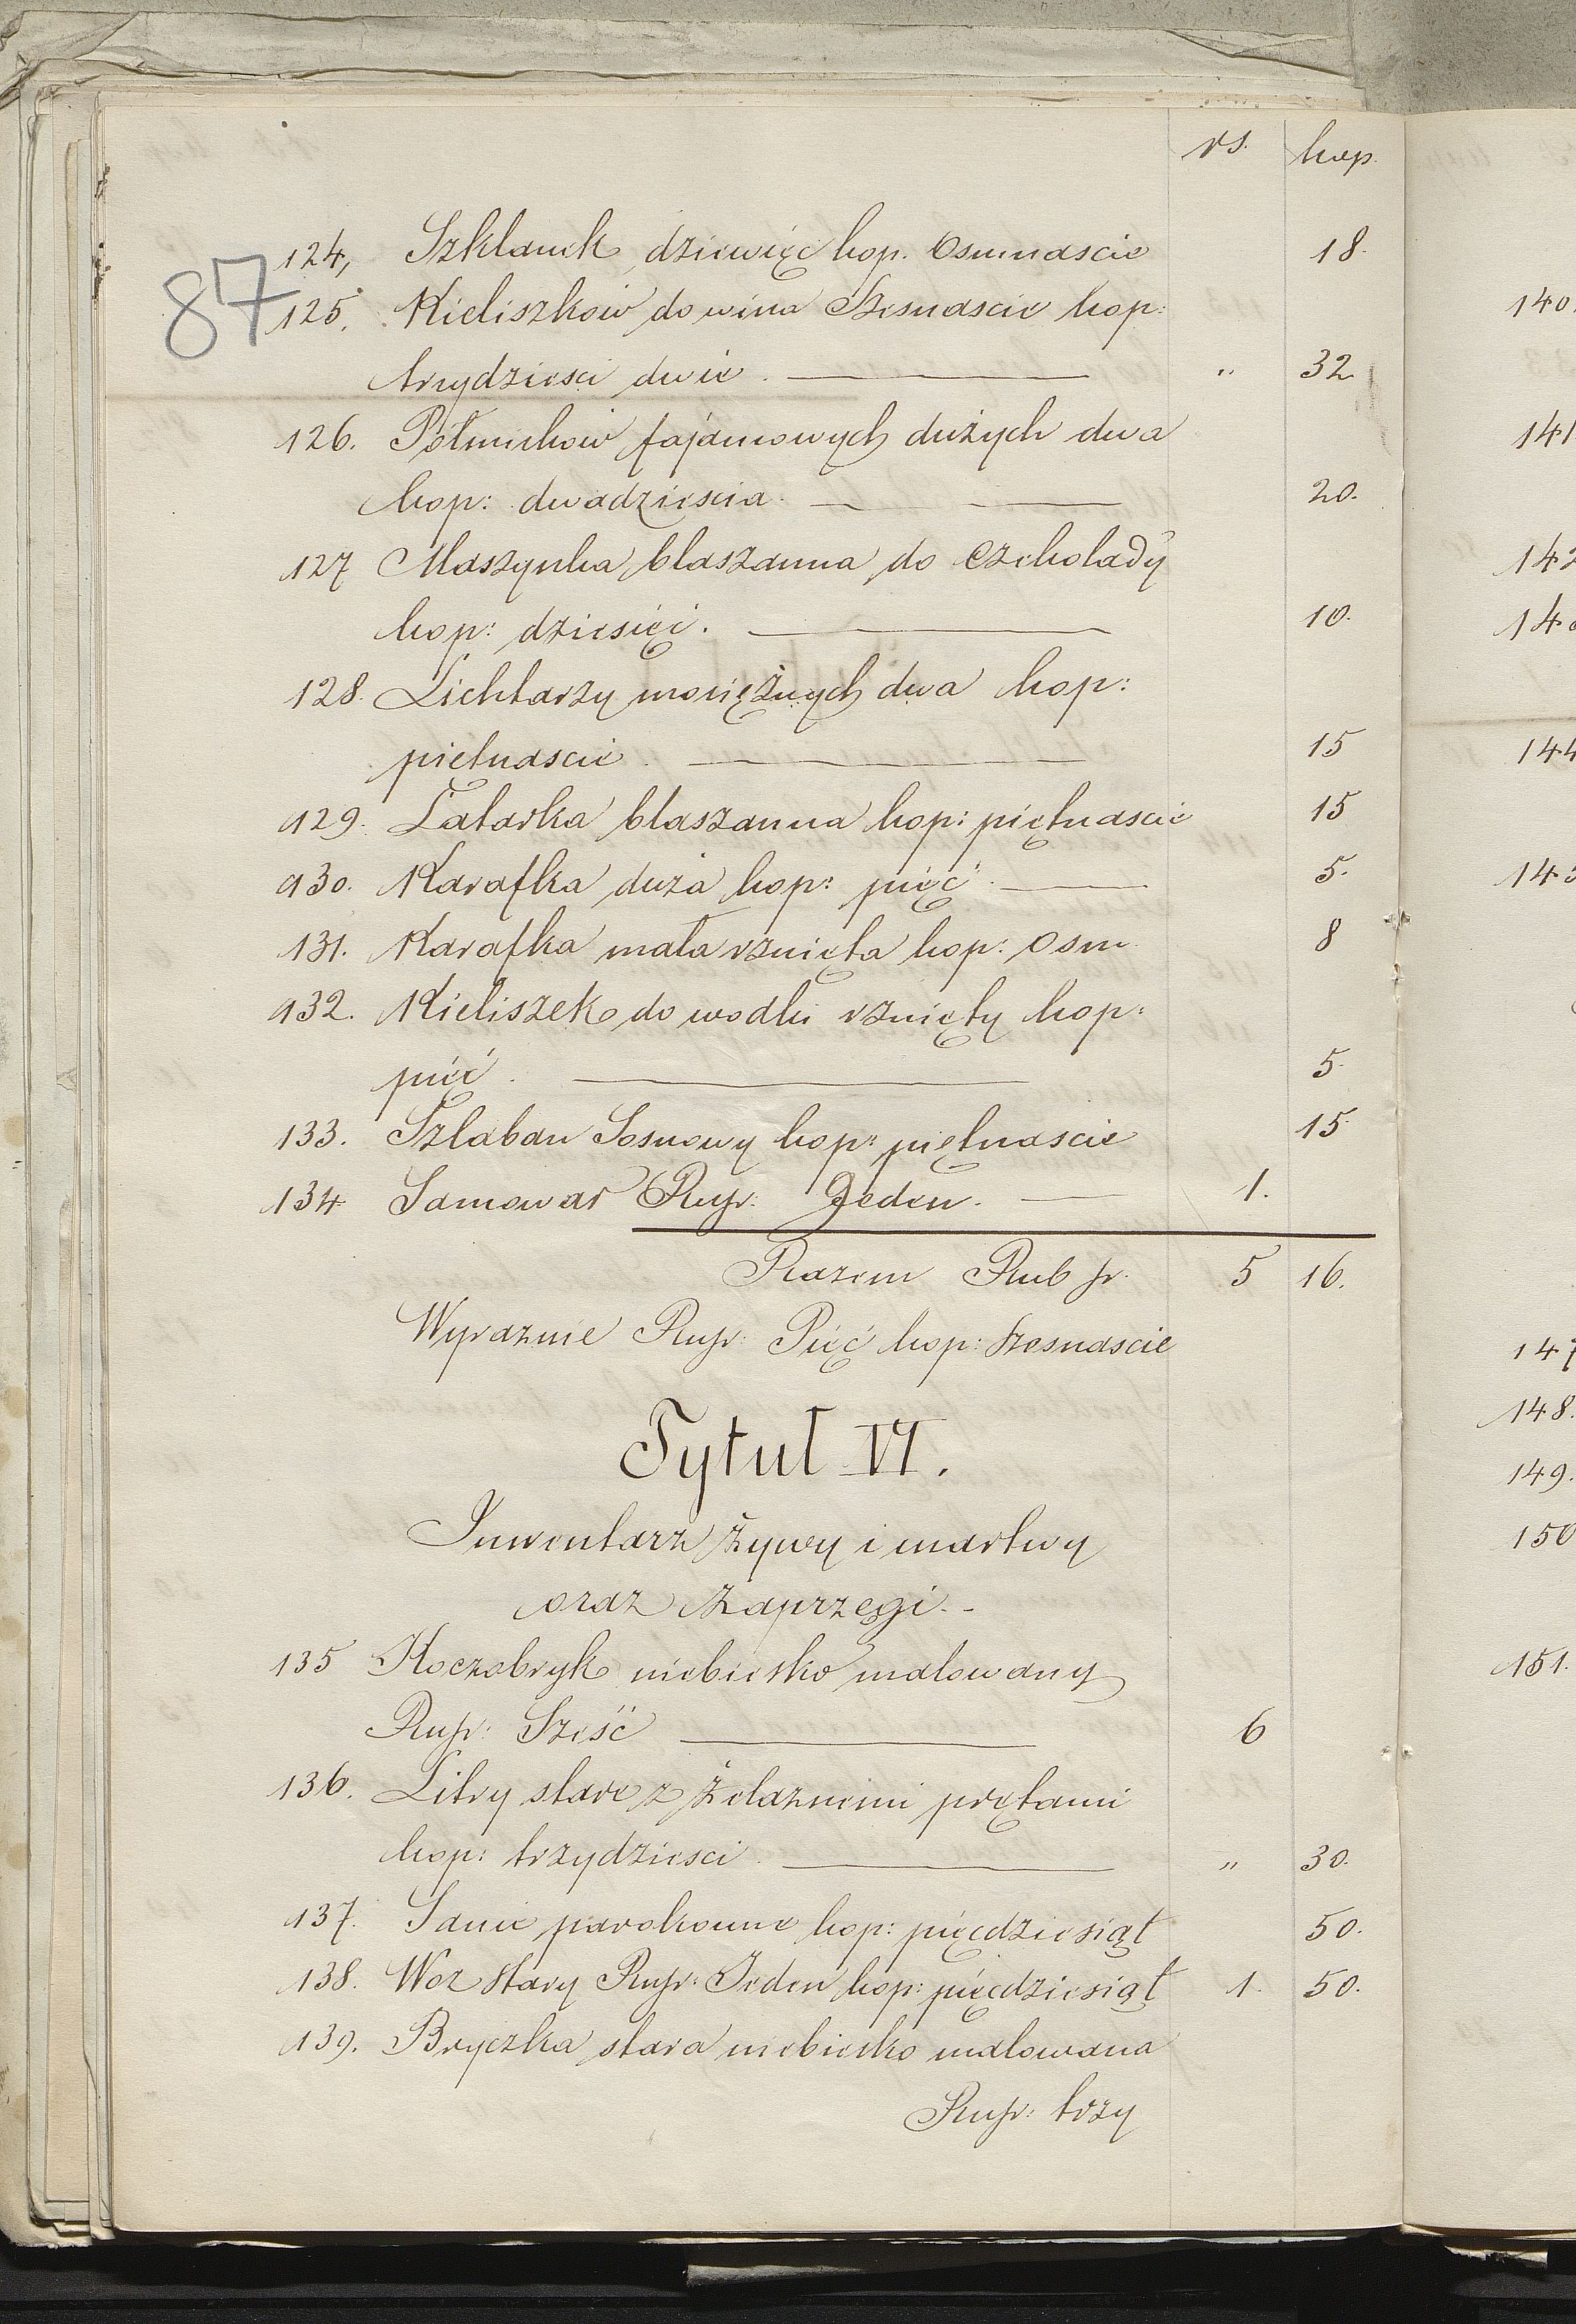 rs. kop.
124, Szklanek dziewięć kop. Osmnascie 18.
87
125. Kieliszków do wina Szesnascie kop:
trzydziesci dwie. " 32
126. Połmisków fajansowych dużych dwa
kop: dwadziescia. 20.
127 Maszynka blaszanna do Czekolady
kop: dziesięć. 10.
128. Lichtarzy mosiężnych dwa kop:
piętnascie. 15
129. Latarka blaszanna kop: piętnascie 15
130. Karafka duża kop: pięć. 5.
131. Karafka mała rznięta kop: Osm. 8
132. Kieliszek do wodki rznięty kop:
pięć. 5
133. Szlaban Sosnowy kop: piętnascie 15.
134 Samowar Rusr: Jeden. 1.
Razem Rub sr. 5 16.
Wyraznie Rusr: Pięć kop: Szesnascie
Tytuł VI.
Inwentarz Żywy i martwy
oraz Zaprzęgi.-
135 Koczobryk niebiesko malowany
Rusr: Sześć 6
136. Litry stare z Żelaznemi prętami
kop: trzydziesci. " 30.
137. Sanie parokonne kop: pięcdziesiąt 50.
138. Woz stary Rusr: Jeden kop: pięcdziesiąt 1. 50.
139. Bryczka stara niebiesko malowana
Rusr: trzy
140.
141
142
144
147
148.
149.
150
151.